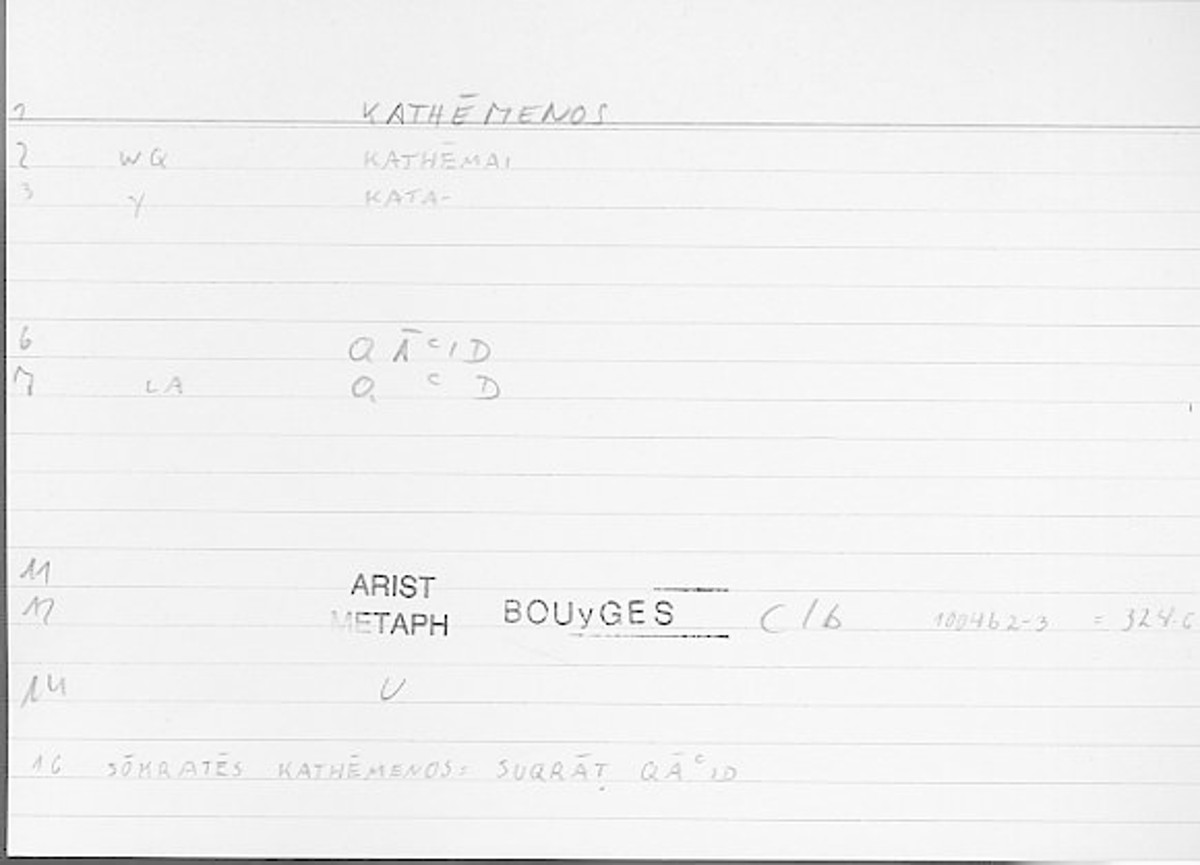 1 KATHĒMENOS
2 WQ KATHĒMAI
3 γ KATA-
6 Q Ā ʿ I D
7 LA Q ʿ D
11 ARIST
12 METAPH BOUyGES C/b 1004b2-3 = 324.6
14 U
16 SŌKRATĒS KATHĒMENOS: SUQRĀṬ QĀʿID